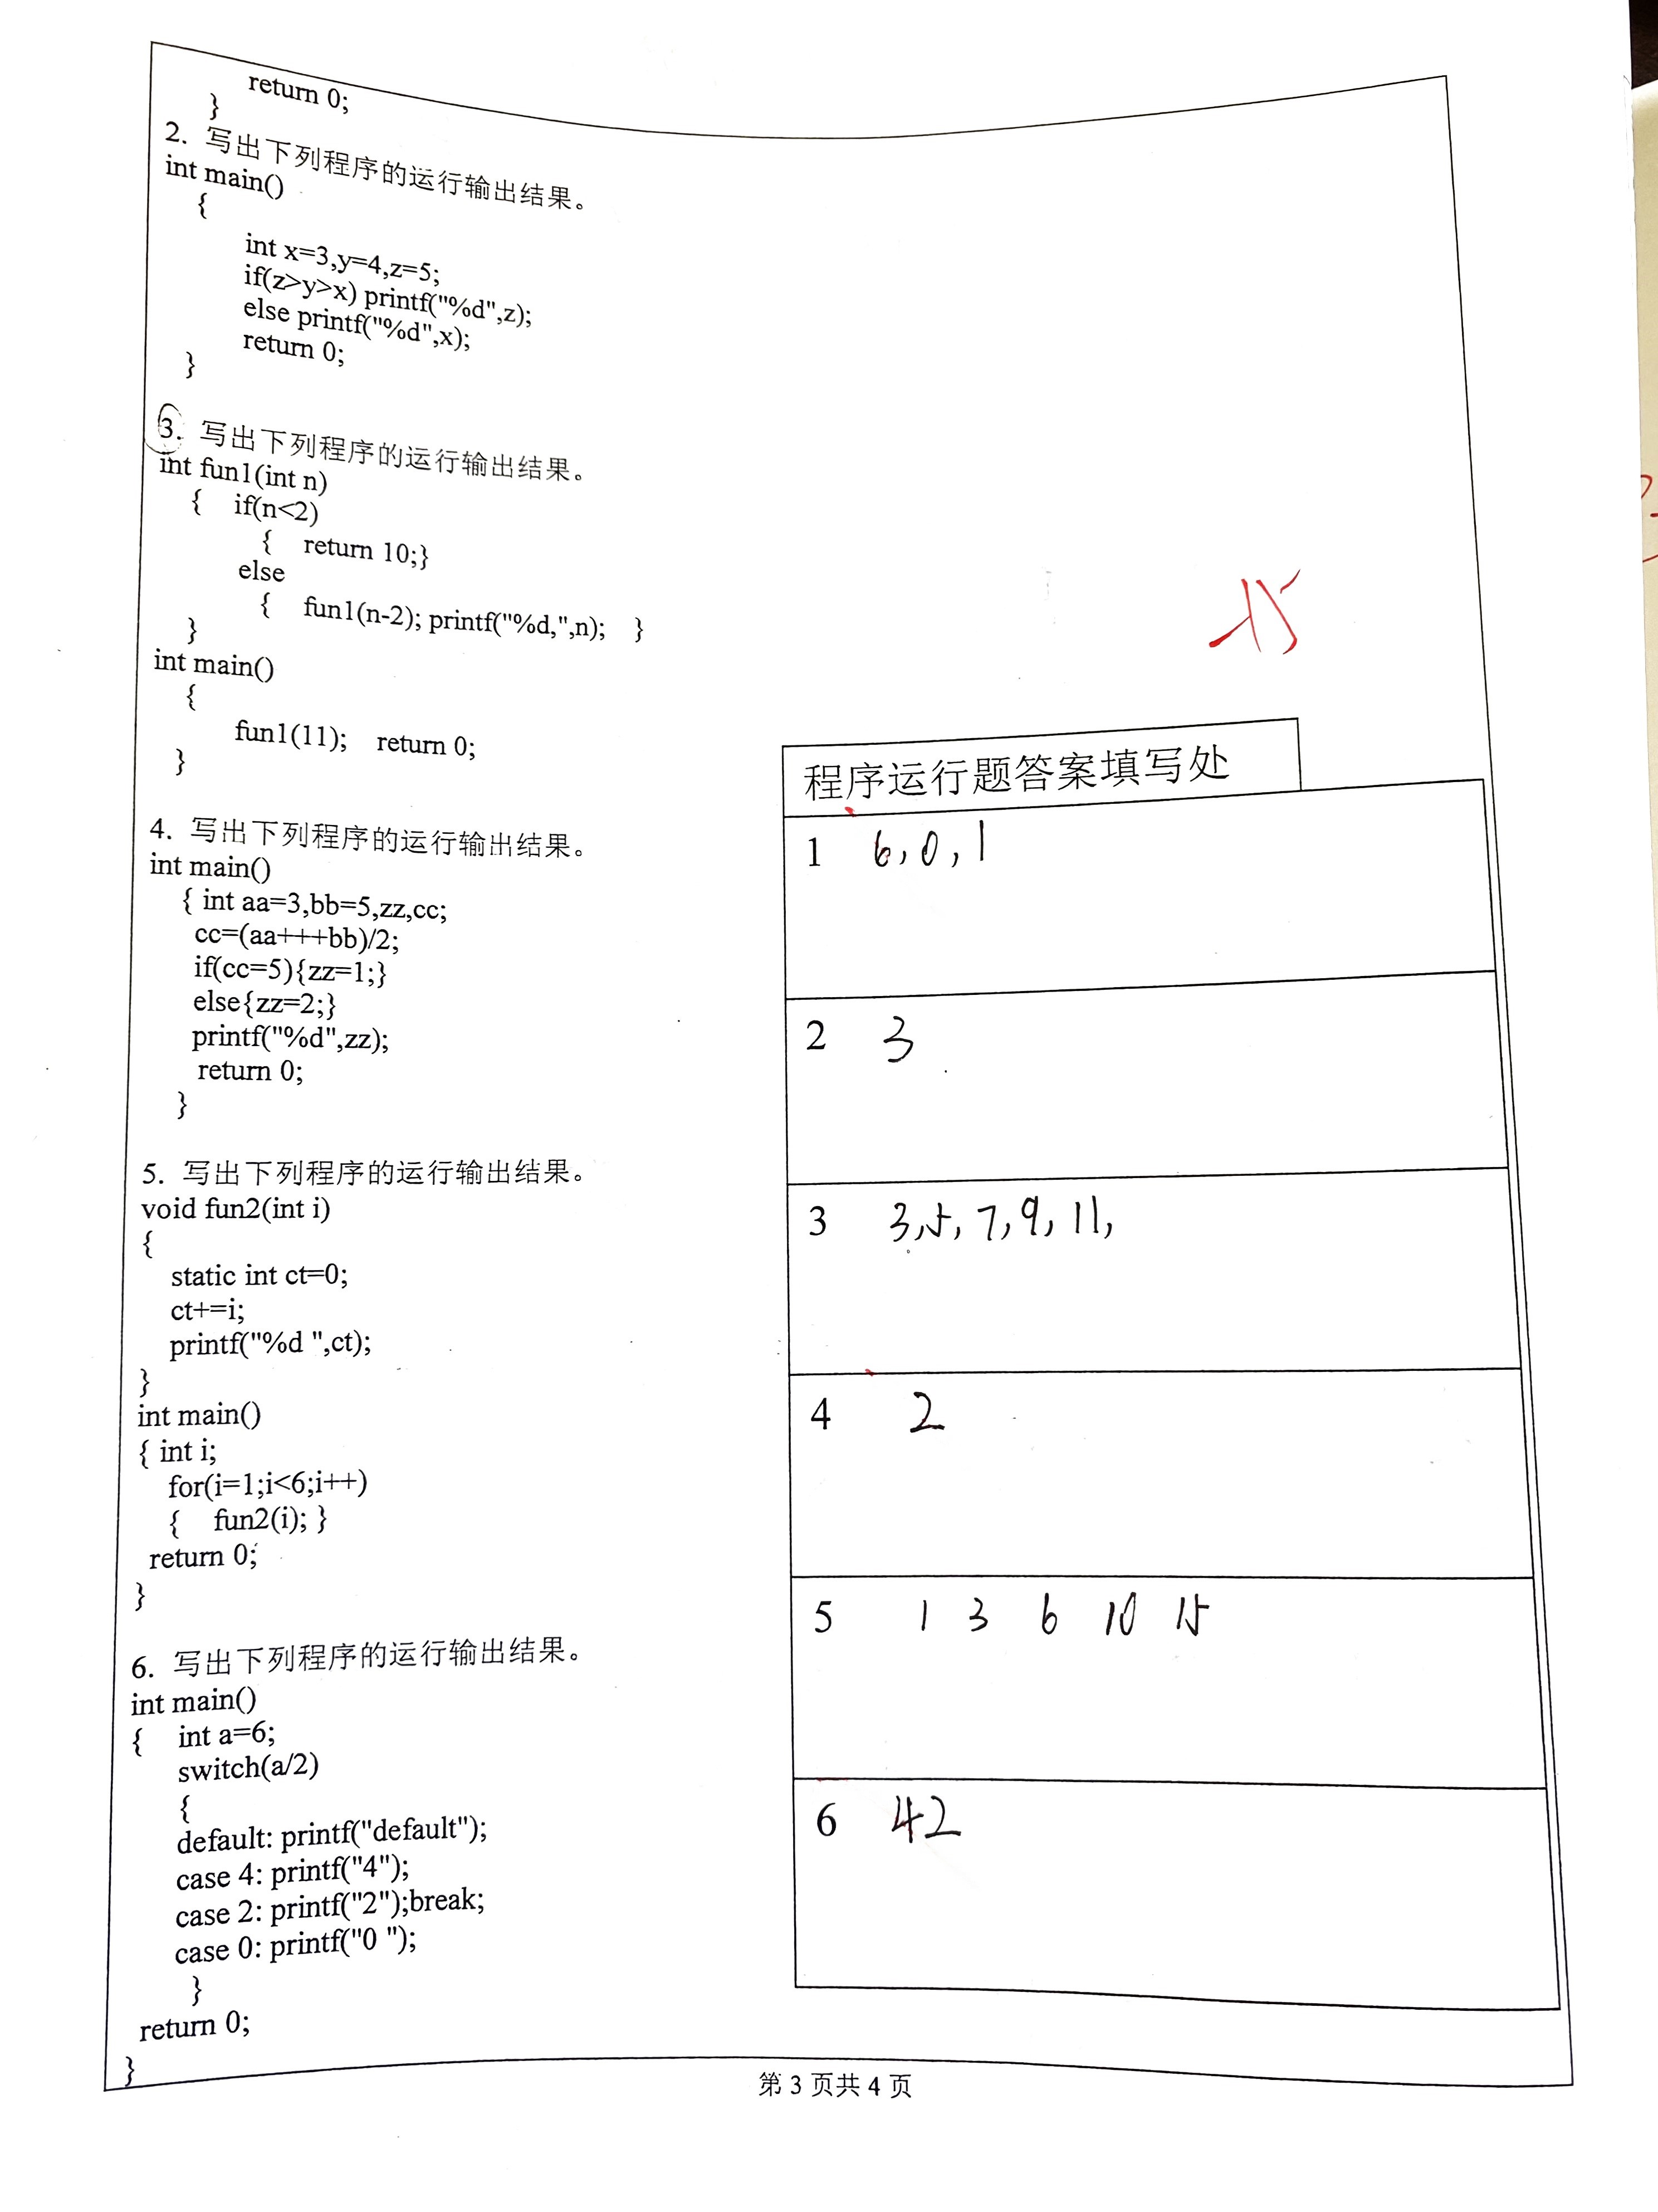 return 0;
}
2. 写出下列程序的运行输出结果。
int main()
{
int x=3,y=4,z=5;
if(z>y>x) printf("%d",z);
else printf("%d",x);
return 0;
}
3. 写出下列程序的运行输出结果。
int fun1(int n)
{ if(n<2)
{ return 10;}
else
{ fun1(n-2); printf("%d,",n); }
}
int main()
{
fun1(11); return 0;
}
4. 写出下列程序的运行输出结果。
int main()
{ int aa=3,bb=5,zz,cc;
cc=(aa+++bb)/2;
if(cc=5){zz=1;}
else{zz=2;}
printf("%d",zz);
return 0;
}
5. 写出下列程序的运行输出结果。
void fun2(int i)
{
static int ct=0;
ct+=i;
printf("%d ",ct);
}
int main()
{ int i;
for(i=1;i<6;i++)
{ fun2(i); }
return 0;
}
6. 写出下列程序的运行输出结果。
int main()
{ int a=6;
switch(a/2)
{
default: printf("default");
case 4: printf("4");
case 2: printf("2");break;
case 0: printf("0 ");
}
return 0;
}
程序运行题答案填写处
1 6,0,1
2 3
3 3,5,7,9,11,
4 2
5 1 3 6 10 15
6 42
第 3 页共 4 页